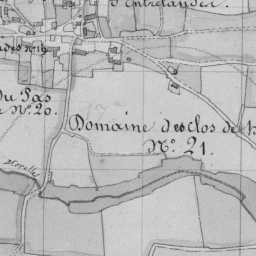 d'Entrelander.
Du Pas
N.º 20.
Domaine des Clos de
N.º 21.